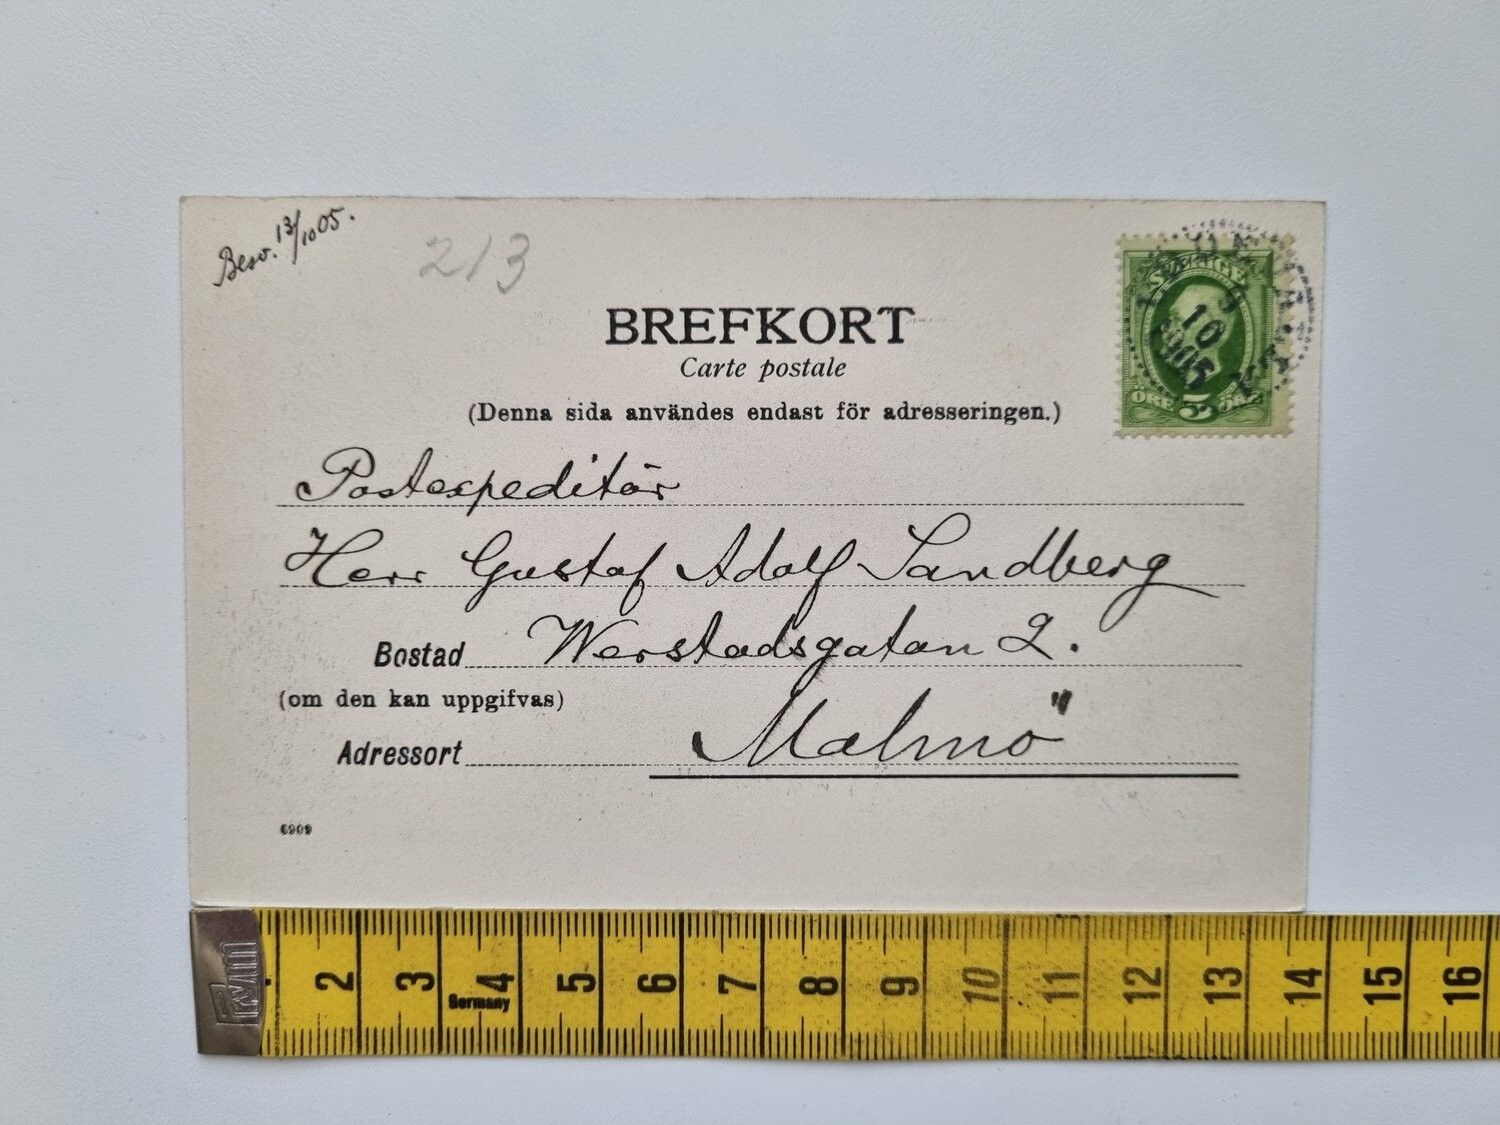 Besv. 13/10 05.
213
BREFKORT
Carte postale
(Denna sida användes endast för adresseringen.)
SVERIGE
10
1905
ÖRE 5 ÖRE
Postexpeditör
Herr Gustaf Adolf Sandberg
Bostad Werstadsgatan 2.
(om den kan uppgifvas)
Adressort Malmö
6909
Prym
2 3 4 5 6 7 8 9 10 11 12 13 14 15 16
Germany